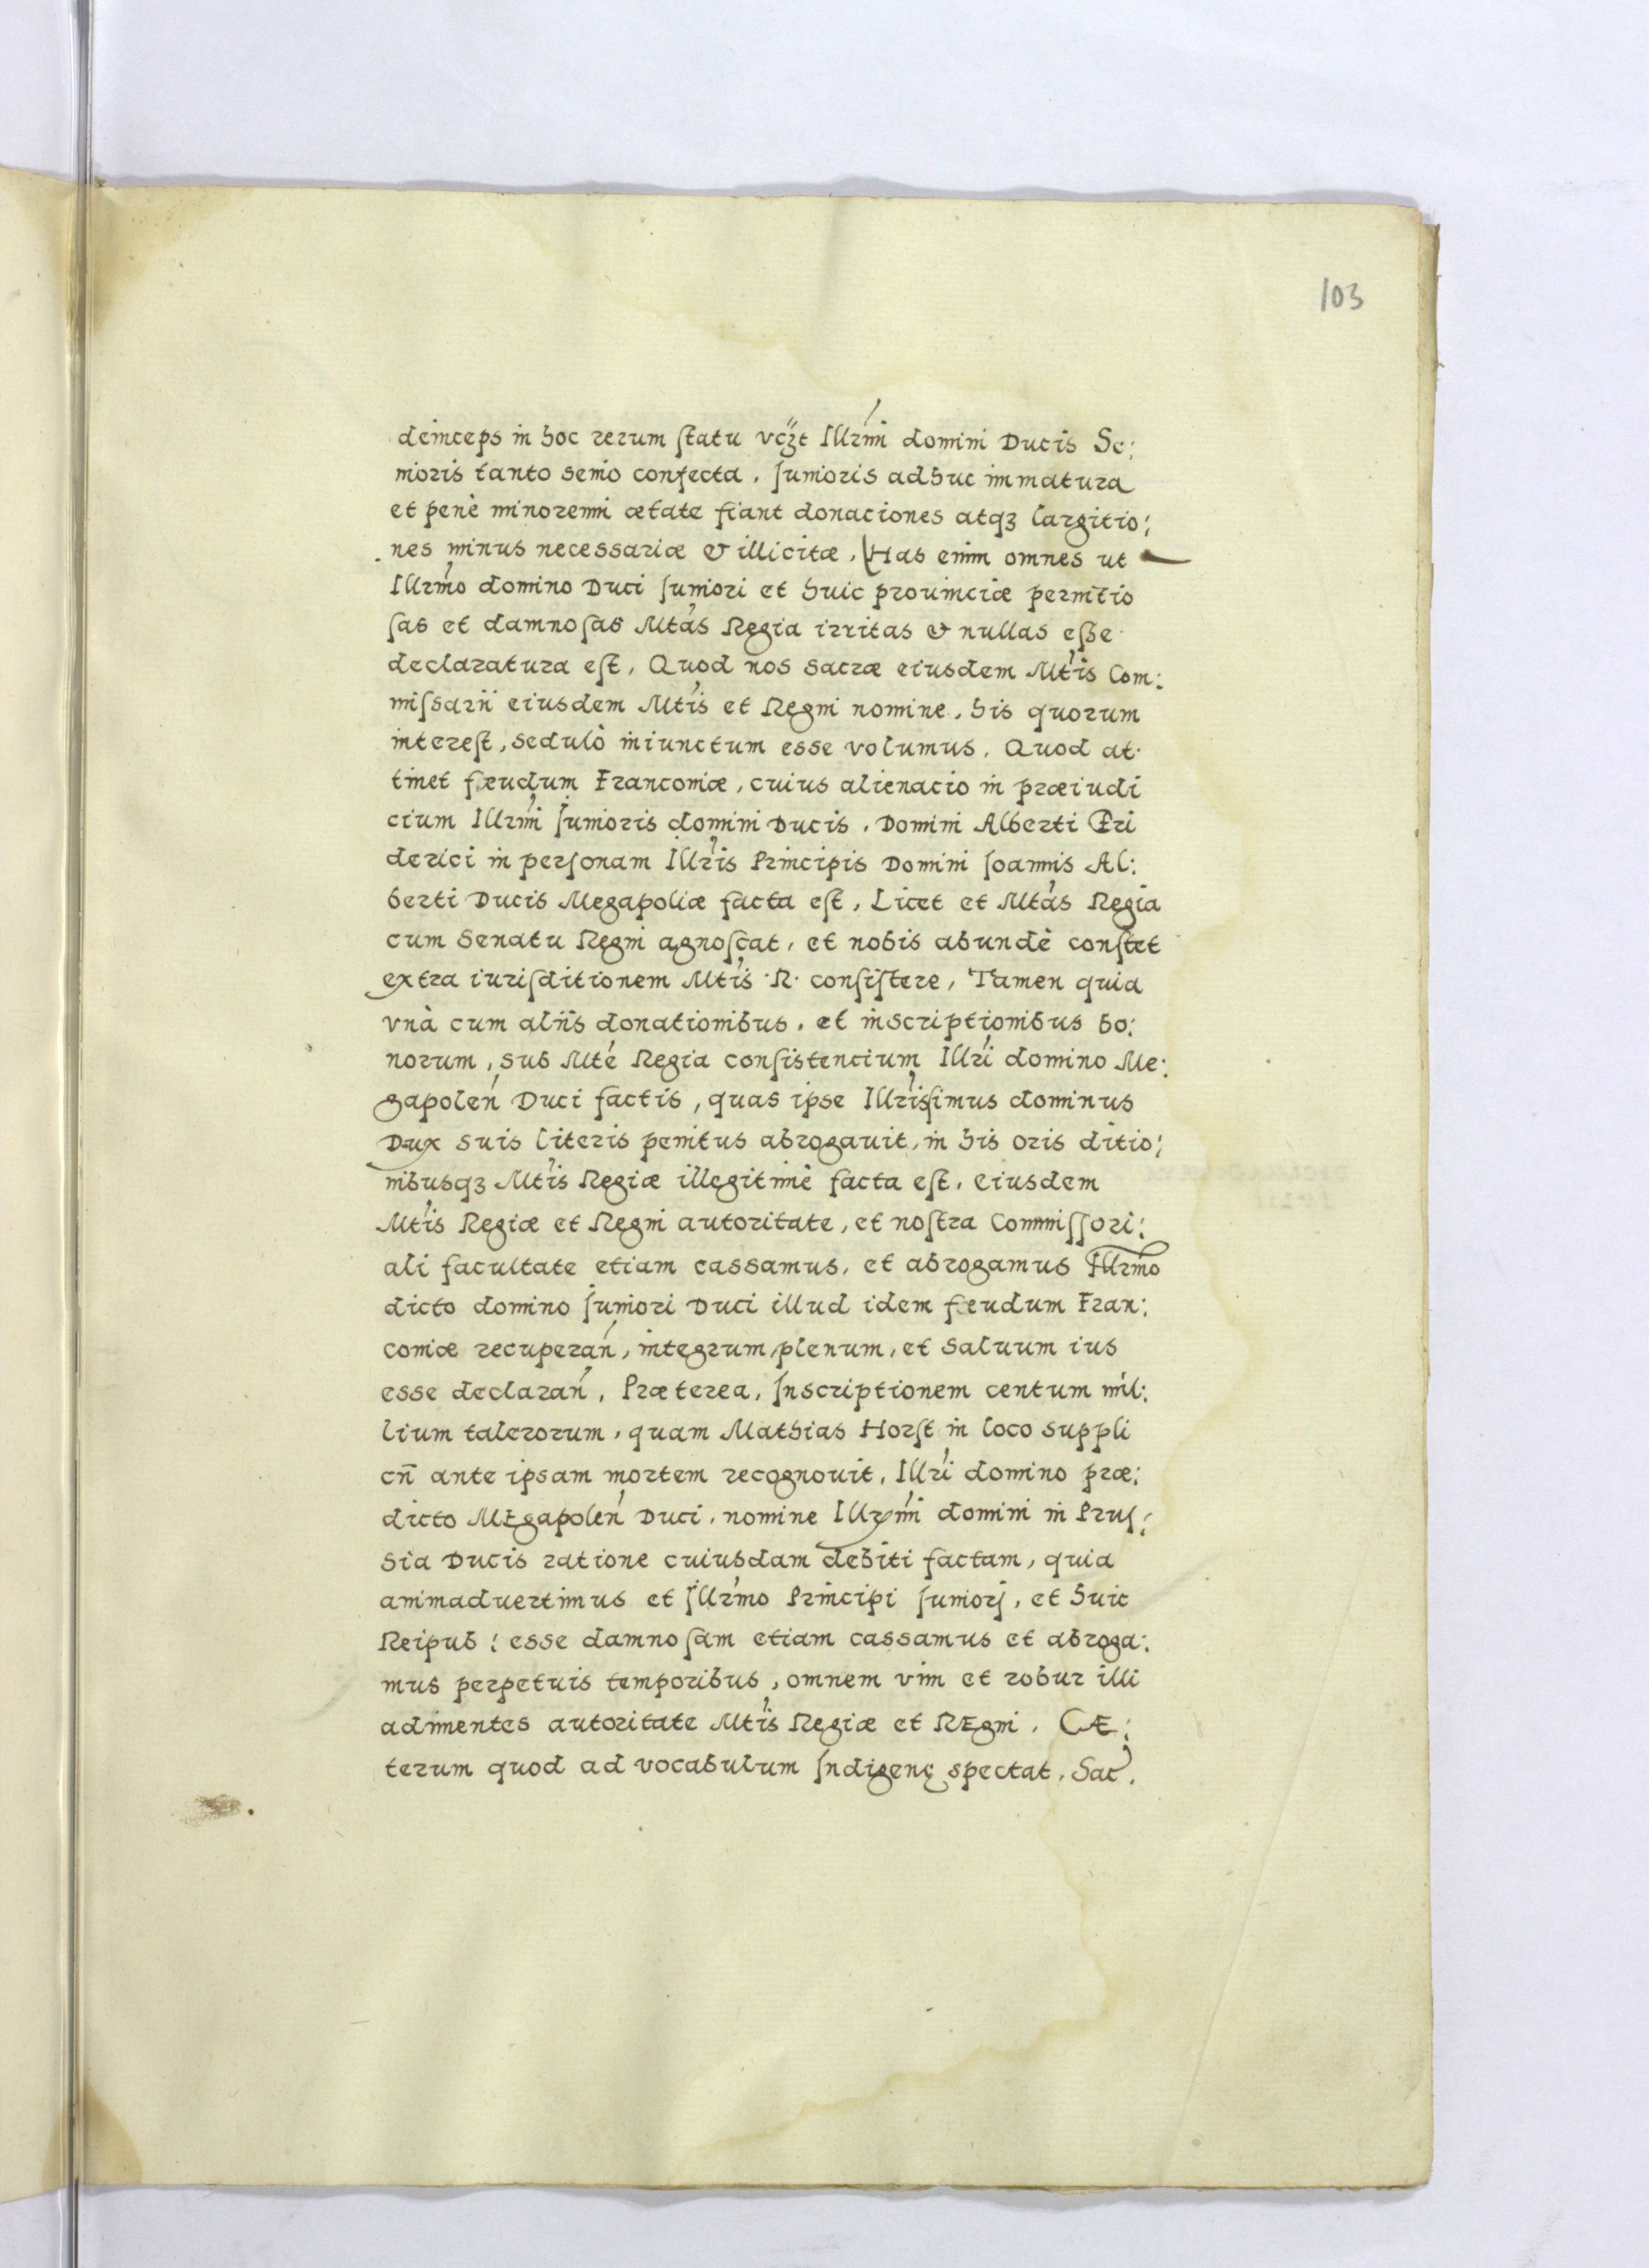 103
deinceps in hoc rerum statu vcꝫt Illrmi domini Ducis Se:
nioris tanto senio confecta, Junioris adhuc immatura
et penè minorenni ætate fiant donaciones atqꝫ largitio:
nes minus necessariæ & illicitæ, Has enim omnes ut
Illrmo domino Duci Juniori et huic prouinciæ pernitio
sas et damnosas Mtas Regia irritas & nullas esse
declaratura est, Quod nos sacræ eiusdem Mtis Com:
missarii eiusdem Mtis et Regni nomine, his quorum
interest, sedulò iniunctum esse volumus. Quod at
tinet feudum Franconiæ, cuius alienacio in præiudi
cium Illrmi Junioris domini Ducis, Domini Alberti Fri
derici in personam Illris Principis Domini Joannis Al:
berti Ducis Megapoliæ facta est, Licet et Mtas Regia
cum Senatu Regni agnoscat, et nobis abundè constet
extra iurisditionem Mtis R. consistere, Tamen quia
vnà cum aliis donationibus, et inscriptionibus bo:
norum, sub Mte Regia consistencium Illri domino Me:
gapolen Duci factis, quas ipse Illrissimus dominus
Dux suis literis penitus abrogauit, in his oris ditio:
nibusqꝫ Mtis Regiæ illegitimè facta est, eiusdem
Mtis Regiæ et Regni autoritate, et nostra Commissori:
ali facultate etiam cassamus, et abrogamus Illrmo
dicto domino Juniori Duci illud idem feudum Fran:
coniæ recuperan, integrum, plenum, et saluum ius
esse declaran, Præterea, Inscriptionem centum mil:
lium talerorum, quam Mathias Horst in loco suppli
cii ante ipsam mortem recognouit, Illri domino præ:
dicto MEgapolen Duci, nomine Illrmi domini in Prus:
sia Ducis ratione cuiusdam debiti factam, quia
animaduertimus et Illrmo Principi Juniorj, et huic
Reipub: esse damnosam etiam cassamus et abroga:
mus perpetuis temporibus, omnem vim et robur illi
adimentes autoritate Mtis Regiæ et REgni, CÆ:
terum quod ad vocabulum Indigenę spectat, Sac.